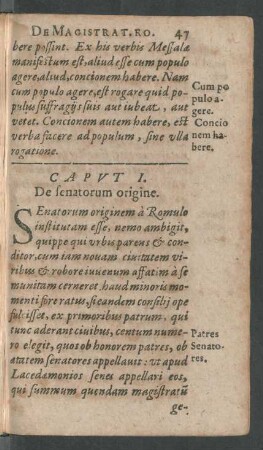 DE MAGISTRAT. RO. 47
bere possint. Ex his verbis Messalæ
manifestum est, aliud esse cum populo
agere, aliud, concionem habere. Nam
cum populo agere, est rogare quid po-
pulũ suffragijs suis aut iubeat, aut
vetet. Concionem autem habere, est
verba facere ad populum, sine vlla
rogatione.
Cum po
pulo a-
gere.
Concio
nem ha-
bere.
CAPVT I.
De senatorum origine.
SEnatorum originem à Romulo
institutam esse, nemo ambigit,
quippe qui vrbis parens & con-
ditor, cum iam nouam ciuitatem vi-
ribus & robore iuuenum affatim à se
munitam cerneret, haud minoris mo-
menti fore ratus, si eandem consilij ope
fulcisset, ex primoribus patrum, qui
tunc aderant ciuibus, centum nume-
ro elegit, quos ob honorem patres, ob
ætatem senatores appellauit: vt apud
Lacedæmonios senes appellari eos,
qui summum quendam magistratũ
Patres
Senato-
res.
ge-